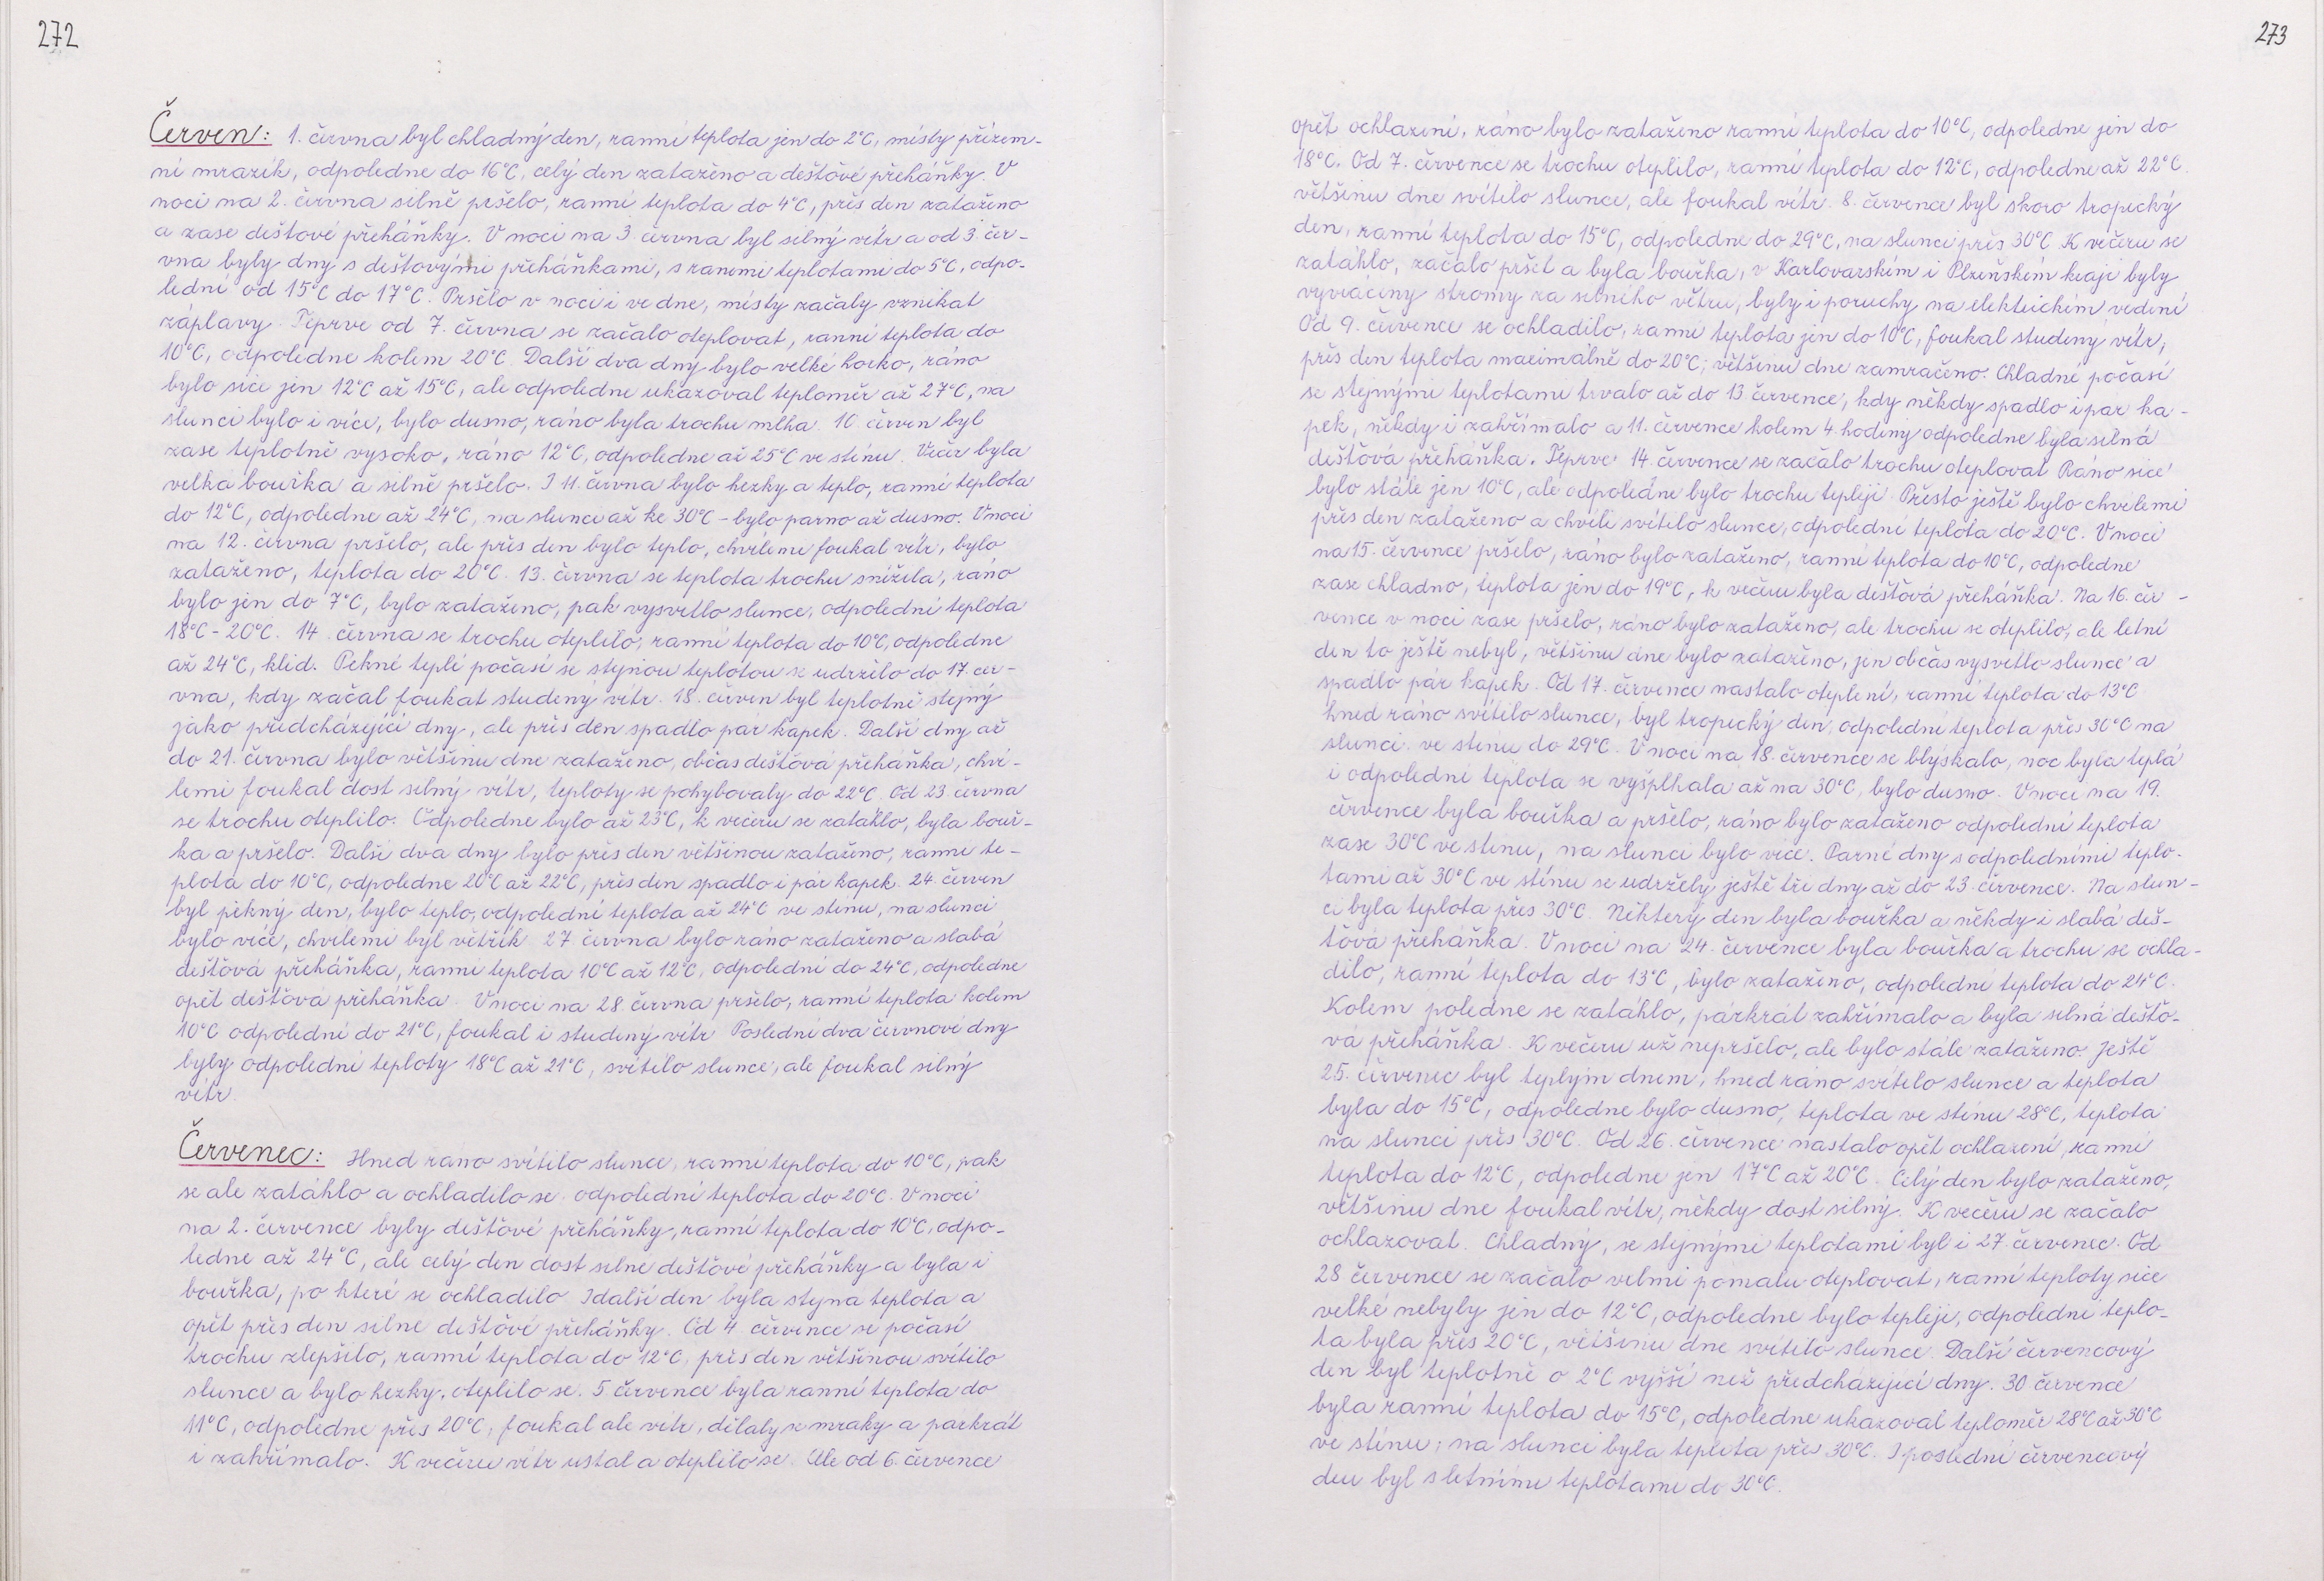 272
Červen: 1. června byl chladný den, ranní teplota jen do 2°C, místy přízem-
ní mrazík, odpoledne do 16°C, celý den zataženo a dešťové přeháňky. V
noci na 2. června silně pršelo, ranní teplota do 4°C, přes den zataženo
a zase dešťové přeháňky. V noci na 3. června byl silný vítr a od 3. čer-
vna byly dny s dešťovými přeháňkami, s ranními teplotami do 5°C, odpo-
lední od 15°C do 17°C. Pršelo v noci i ve dne, místy začaly vznikat
záplavy. Teprve od 7. června se začalo oteplovat, ranní teplota do
10°C, odpoledne kolem 20°C. Další dva dny bylo velké horko, ráno
bylo sice jen 12°C až 15°C, ale odpoledne ukazoval teploměr až 27°C, na
slunci bylo i více, bylo dusno, ráno byla trochu mlha. 10. červen byl
zase teplotně vysoko, ráno 12°C, odpoledne až 25°C ve stínu. Večer byla
velká bouřka a silně pršelo. I 11. června bylo hezky a teplo, ranní teplota
do 12°C, odpoledne až 24°C, na slunce až ke 30°C - bylo parno až dusno. V noci
na 12. června pršelo, ale přes den bylo teplo, chvílemi foukal vítr, bylo
zataženo, teplota do 20°C. 13. června se teplota trochu snížila, ráno
bylo jen do 7°C, bylo zataženo, pak vysvitlo slunce, odpolední teplota
18°C - 20°C. 14. června se trochu oteplilo, ranní teplota do 10°C, odpoledne
až 24°C, klid. Pěkné teplé počasí se stejnou teplotou se udrželo do 17. čer-
vna, kdy začal foukat studený vítr. 18. červen byl teplotně stejný
jako předcházející dny, ale přes den spadlo pár kapek. Další dny až
do 21. června bylo většinu dne zataženo, občas dešťová přeháňka, chví-
lemi foukal dost silný vítr, teploty se pohybovaly do 22°C. Od 23. června
se trochu oteplilo. Odpoledne bylo až 23°C, k večeru se zatáhlo, byla bouř-
ka a pršelo. Další dva dny bylo přes den většinou zataženo, ranní te-
plota do 10°C, odpoledne 20°C až 22°C, přes den spadlo i pár kapek. 24. červen
byl pěkný den, bylo teplo, odpolední teplota až 24°C ve stínu, na slunci
bylo více, chvílemi byl větřík. 27. června bylo ráno zataženo a slabá
dešťová přeháňka, ranní teplota 10°C až 12°C, odpolední do 24°C, odpoledne
opět dešťová přeháňka. V noci na 28. června pršelo, ranní teplota kolem
10°C odpolední do 21°C, foukal i studený vítr. Poslední dva červnové dny
byly odpolední teploty 18°C až 21°C, svítilo slunce, ale foukal silný
vítr.
Červenec: Hned ráno svítilo slunce, ranní teplota do 10°C, pak
se ale zatáhlo a ochladilo se. odpolední teplota do 20°C. V noci
na 2. července byly dešťové přeháňky, ranní teplota do 10°C, odpo-
ledne až 24°C, ale celý den dost silné dešťové přeháňky a byla i
bouřka, po které se ochladilo. I další den byla stejná teplota a
opět přes den silné dešťové přeháňky. Od 4. července se počasí
trochu zlepšilo, ranní teplota do 12°C, přes den většinou svítilo
slunce a bylo hezky, oteplilo se. 5 července byla ranní teplota do
11°C, odpoledne přes 20°C, foukal ale vítr, dělaly se mraky a párkrát
i zahřímalo. K večeru vítr ustal a oteplilo se. Ale od 6. července
273
opět ochlazení, ráno bylo zataženo ranní teplota do 10°C, odpoledne jen do
18°C. Od 7. července se trochu oteplilo, ranní teplota do 12°C, odpoledne až 22°C.
většinu dne svítilo slunce, ale foukal vítr. 8. července byl skoro tropický
den, ranní teplota do 15°C, odpoledne do 29°C, na slunci přes 30°C. K večeru se
zatáhlo, začalo pršet a byla bouřka, v Karlovarském i Plzeňském kraji byly
vyvráceny stromy za silného větru, byly i poruchy na elektrickém vedení.
Od 9. července se ochladilo, ranní teplota jen do 10°C, foukal studený vítr,
přes den teplota maximálně do 20°C; většinu dne zamračeno. Chladné počasí
se stejnými teplotami trvalo až do 13. července, kdy někdy spadlo i pár ka-
pek, někdy i zahřímalo a 11. července kolem 4. hodiny odpoledne byla silná
dešťová přeháňka. Teprve 14. července se začalo trochu oteplovat. Ráno sice
bylo stále jen 10°C, ale odpoledne bylo trochu tepleji. Přesto ještě bylo chvílemi
přes den zataženo a chvíli svítilo slunce, odpolední teplota do 20°C. V noci
na 15. července pršelo, ráno bylo zataženo, ranní teplota do 10°C, odpoledne
zase chladno, teplota jen do 19°C, k večeru byla dešťová přeháňka. Na 16. čer-
vence v noci zase pršelo, ráno bylo zataženo, ale trochu se oteplilo, ale letní
den to ještě nebyl, většinu dne bylo zataženo, jen občas vysvitlo slunce a
spadlo pár kapek. Od 17. července nastalo oteplení, ranní teplota do 13°C
hned ráno svítilo slunce, byl tropický den, odpolední teplota přes 30°C na
slunci. ve stínu do 29°C. V noci na 18. července se blýskalo, noc byla teplá
i odpolední teplota se vyšplhala až na 30°C, bylo dusno. V noci na 19.
července byla bouřka a pršelo, ráno bylo zataženo odpolední teplota
zase 30°C ve stínu, na slunci bylo více. Parné dny s odpoledními teplo-
tami až 30°C ve stínu se udržely ještě tři dny až do 23. července. Na slun-
ci byla teplota přes 30°C. Některý den byla bouřka a někdy i slabá deš-
ťová přeháňka. V noci na 24. července byla bouřka a trochu se ochla-
dilo, ranní teplota do 13°C, bylo zataženo, odpolední teplota do 24°C.
Kolem poledne se zatáhlo, párkrát zahřímalo a byla silná dešťo-
vá přeháňka. K večeru už nepršelo, ale bylo stále zataženo. Ještě
25. červenec byl teplým dnem, hned ráno svítilo slunce a teplota
byla do 15°C, odpoledne bylo dusno, teplota ve stínu 28°C, teplota
na slunci přes 30°C. Od 26. července nastalo opět ochlazení, ranní
teplota do 12°C, odpoledne jen 17°C až 20°C. Celý den bylo zataženo,
většinu dne foukal vítr, někdy dost silný. K večeru se začalo
ochlazovat. Chladný, se stejnými teplotami byl i 27. červenec. Od
28 července se začalo velmi pomalu oteplovat, ranní teploty sice
velké nebyly jen do 12°C, odpoledne bylo tepleji, odpolední teplo-
ta byla přes 20°C, většinu dne svítilo slunce. Další červencový
den byl teplotně o 2°C vyšší než předcházející dny. 30 července
byla ranní teplota do 15°C, odpoledne ukazoval teploměr 28°C až 30°C
ve stínu, na slunci byla teplota přes 30°C. I poslední červencový
den byl s letními teplotami do 30°C.